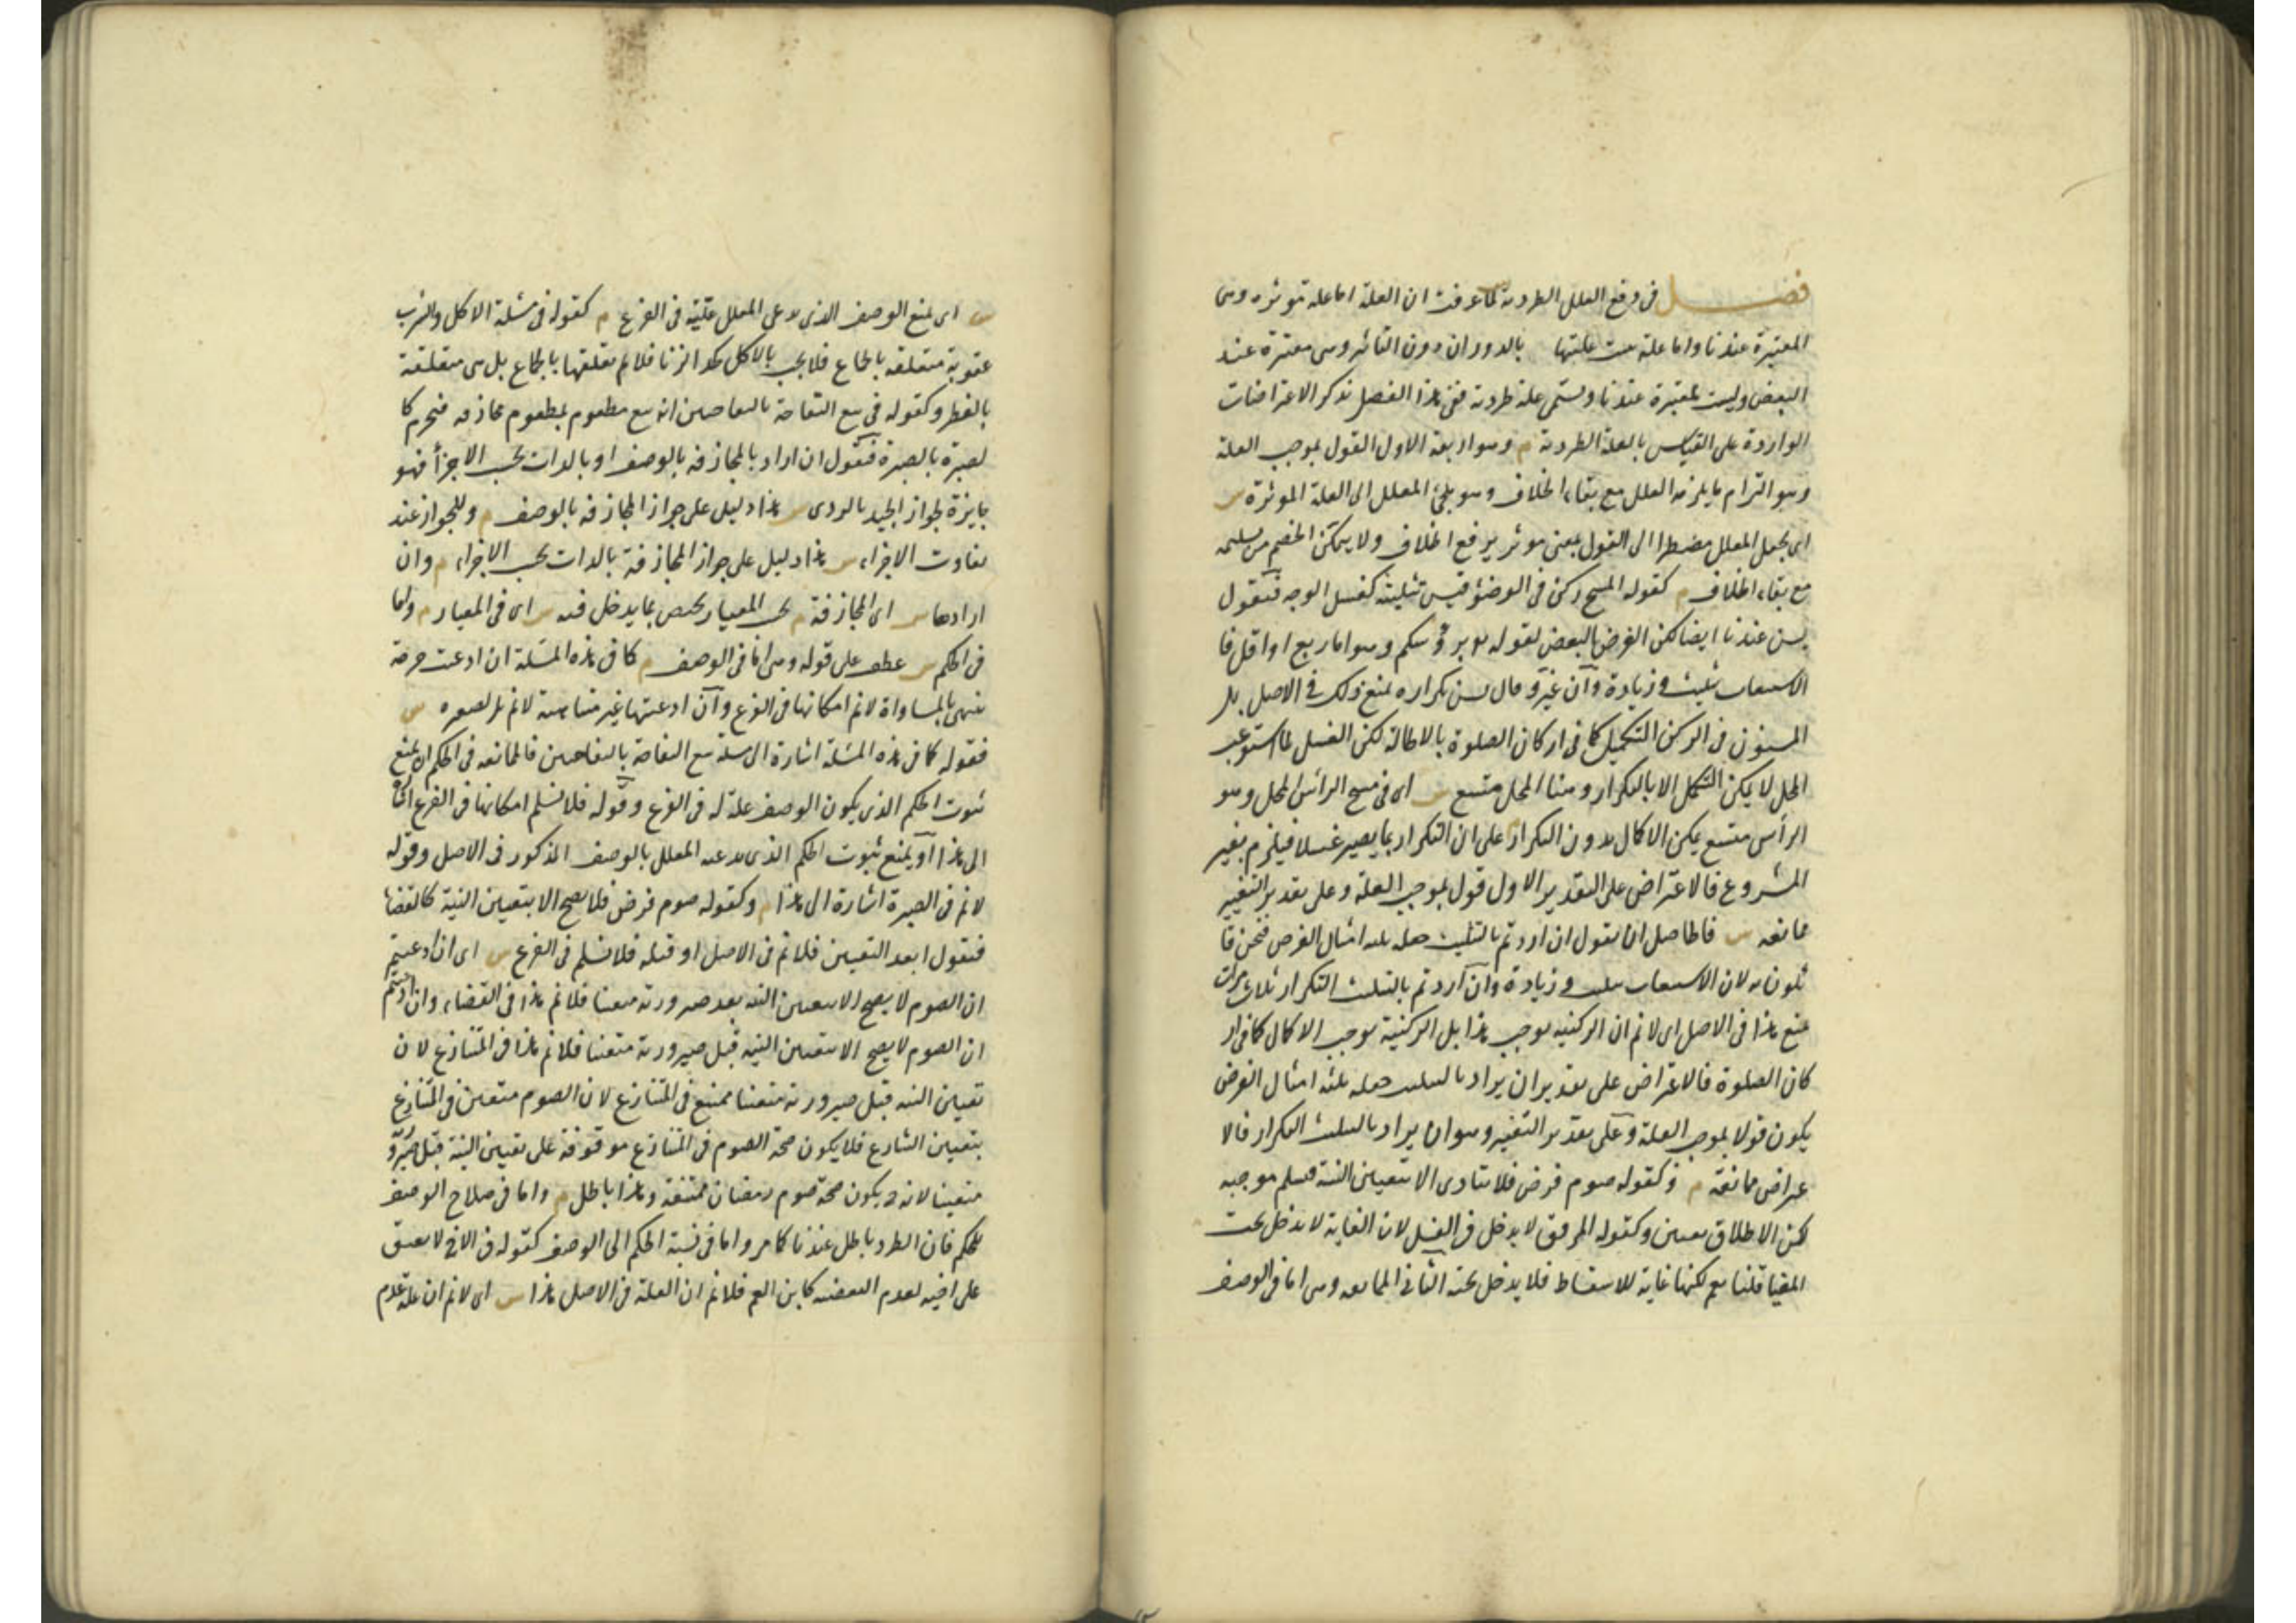 فصل في دفع العلل الطردية لما عرفت ان العلة اما علة موثرة وهى
المعتبرة عندنا واما علة يثبت عليتها بالدوران دون التاثير وهى معتبرة عند
البعض وليست بمعتبرة عندنا وتسمى علة طردية ففى هذا الفصل نذكر الاعتراضات
الواردة على القياس بالعلة الطردية م وهو اربعة الاول القول بموجب العلة
وهو التزام ما يلزمه المعلل مع بقاء الخلاف وهو يلجئ المعلل الى العلة الموثرة س
اى يجعل المعلل مضطرا الى القول بمعنى موثر يرفع الخلاف ولا يتمكن الخصم من تسليمه
مع بقاء الخلاف م كقوله المسح ركن فى الوضؤ فيسن تثليثه كغسل الوجه فنقول
يسن عندنا ايضا لكن الفرض البعض لقوله برؤسكم وهو اما ربع او اقل فا
لاستيعاب تثليث وزيادة وان غير وقال يسن تكراره نمنع ذلك فى الاصل بل
المسنون فى الركن التكميل كما فى اركان الصلوة بالاطالة لكن الغسل لما استوعب
المحل لا يمكن التكميل الا بالتكرار وهنا المحل متسع س اى فى مسح الراس المحل وهو
الرأس متسع يمكن الاكمال بدون التكرار م على ان التكرار بما يصير غسلا فيلزم تغير
المشروع فالاعتراض على التقدير الاول قول بموجب العلة وعلى تقدير التغيير
ممانعه س فالحاصل ان نقول ان اردتم بالتثليث جعله ثلثة امثال الفرض فنحن قا
ئلون به لان الاستيعاب تثليث وزيادة وان اردتم بالتثليث التكرار ثلاث مرات
نمنع هذا فى الاصل اى لا نم ان الركنية توجب هذا بل الركنية توجب الاكمال كما فى ار
كان الصلوة فالاعتراض على تقدير ان يراد بالتثليث جعله ثلثة امثال الفرض
يكون قولا بموجب العلة وعلى تقدير التغيير وهو ان يراد بالتثليث التكرار فالا
عتراض ممانعة م وكقوله صوم فرض فلا يتادى الا بتعيين النية فنسلم موجبه
لكن الاطلاق تعيين وكقوله المرفق لا يدخل فى الغسل لان الغاية لا تدخل تحت
المغيا قلنا نعم لكنها غاية للاسقاط فلا يدخل تحته الثانى الممانعه وهى اما فى الوصف
س اى يمنع الوصف الذى يدعى المعلل عليته فى الفرع م كقوله فى مسئلة الاكل والشرب
عقوبة متعلقه بالجماع فلا يجب بالاكل كحد الزنا فلا نم تعلقها بالجماع بل هى متعلقة
بالفطر وكقوله فى بيع التفاحة بالتفاحتين انه بيع مطعوم بمطعوم مجازفه فيحرم كا
لصبرة بالصبرة فنقول ان اراد بالمجازفه بالوصف او بالذات بحسب الاجزأ فهو
جايزة لجواز الجيد بالردى س هذا دليل على جواز المجازفه بالوصف م وللجواز عند
تفاوت الاجزاء س هذا دليل على جواز المجازفة بالذات بحسب الاجزاء م وان
ارادها س اى المجازفة م بحسب المعيار يختص بما يدخل فيه س اى فى المعيار م واما
فى الحكم س عطف على قوله وهى اما فى الوصف م كما فى هذه المسئلة ان ادعيت حرمة
تنتهى بالمساواة لا نم امكانها فى الفرع وان ادعيتها غير متناهية لا نم فى الصبرة س
فقوله كما فى هذه المسئلة اشارة الى مسئلة بيع التفاحة بالتفاحتين فالممانعه فى الحكم ان يمنع
ثبوت الحكم الذى يكون الوصف علة له فى الفرع وقوله فلا نسلم امكانها فى الفرع اشارة
الى هذا او يمنع ثبوت الحكم الذى يدعيه المعلل بالوصف المذكور فى الاصل وقوله
لا نم فى الصبرة اشارة الى هذا م وكقوله صوم فرض فلا يصح الا بتعيين النية كالقضاء
فنقول ابعد التعيين فلا نم فى الاصل او قبله فلا نسلم فى الفرع س اى ان ادعيتم
ان الصوم لا يصح الا بتعيين النية بعد صيرورته متعينا فلا نم هذا فى القضاء وان ادعيتم
ان الصوم لا يصح الا بتعيين النيه قبل صيرورته متعينا فلا نم هذا فى المتنازع لان
تعيين النية قبل صيرورته متعينا ممتنع فى المتنازع لان الصوم متعين فى المتنازع
بتعيين الشارع فلا يكون صحة الصوم فى المتنازع موقوفة على تعيين النية قبل صيرورته
متعينا لانه ح يكون صحة صوم رمضان ممتنعة وهذا باطل م واما فى صلاح الوصف
للحكم فان الطرد باطل عندنا كما مر واما فى نسبة الحكم الى الوصف كقوله فى الاخ لا يعتق
على اخيه لعدم البعضية كابن العم فلا نم ان العلة فى الاصل هذا س اى لا نم ان علة عدم